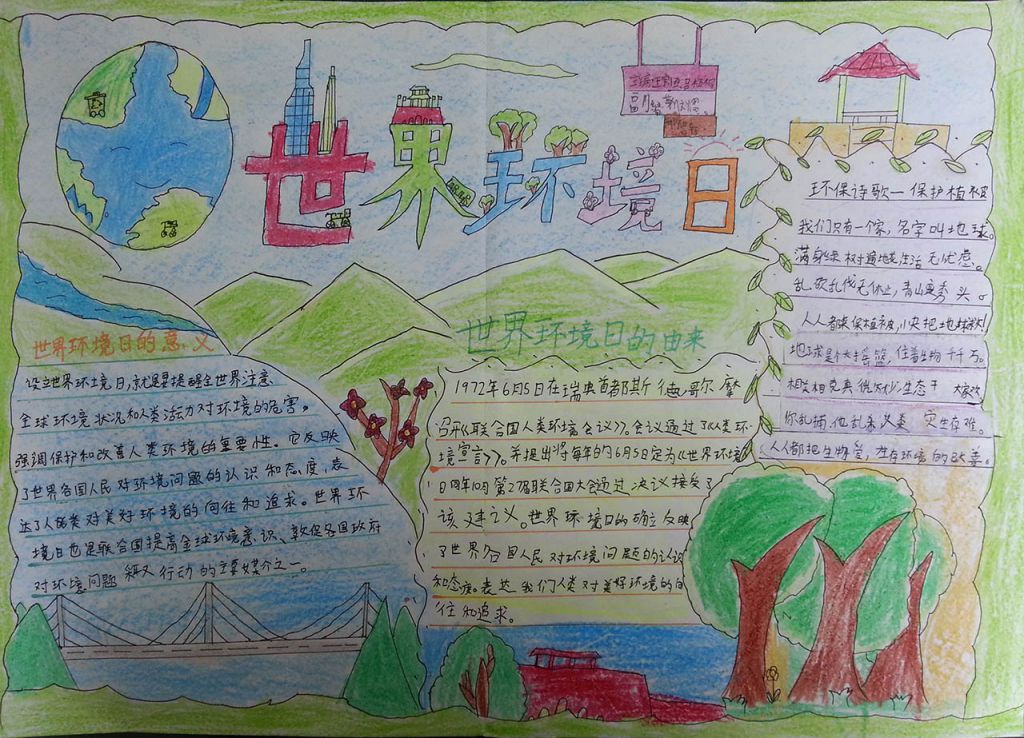 世界环境日
环保诗歌一保护植被
我们只有一个家，名字叫地球。
满身绿树遍地花生活无忧愁。
乱砍乱伐无休止，青山变秃头。
人人都来保植被，
地球是个大摇篮，住着生物千千万。
相生相克
你乱捕，他乱杀
人人都把生物爱，
世界环境日的意义
设立世界环境日，就是要提醒全世界注意
全球环境状况和人类活力对环境的危害。
强调保护和改善人类环境的重要性。它反映
了世界各国人民对环境问题的认识和态度，表
达了人类对美好环境的向往和追求。世界环
境日也是联合国提高全球环境意识、敦促各国政府
对环境问题 行动的主要媒介之一。
世界环境日的由来
1972年6月5日在瑞典首都斯德哥尔摩
召开《联合国人类环境会议》。会议通过了《人类环
境宣言》。并提出将每年的6月5日定为《世界环境
日 同年10月第27届联合国大会通过决议接受了
该建义。世界环境日的确立反映
了世界各国人民对环境问题的认识
和态度。表达我们人类对美好环境的向
往和追求。